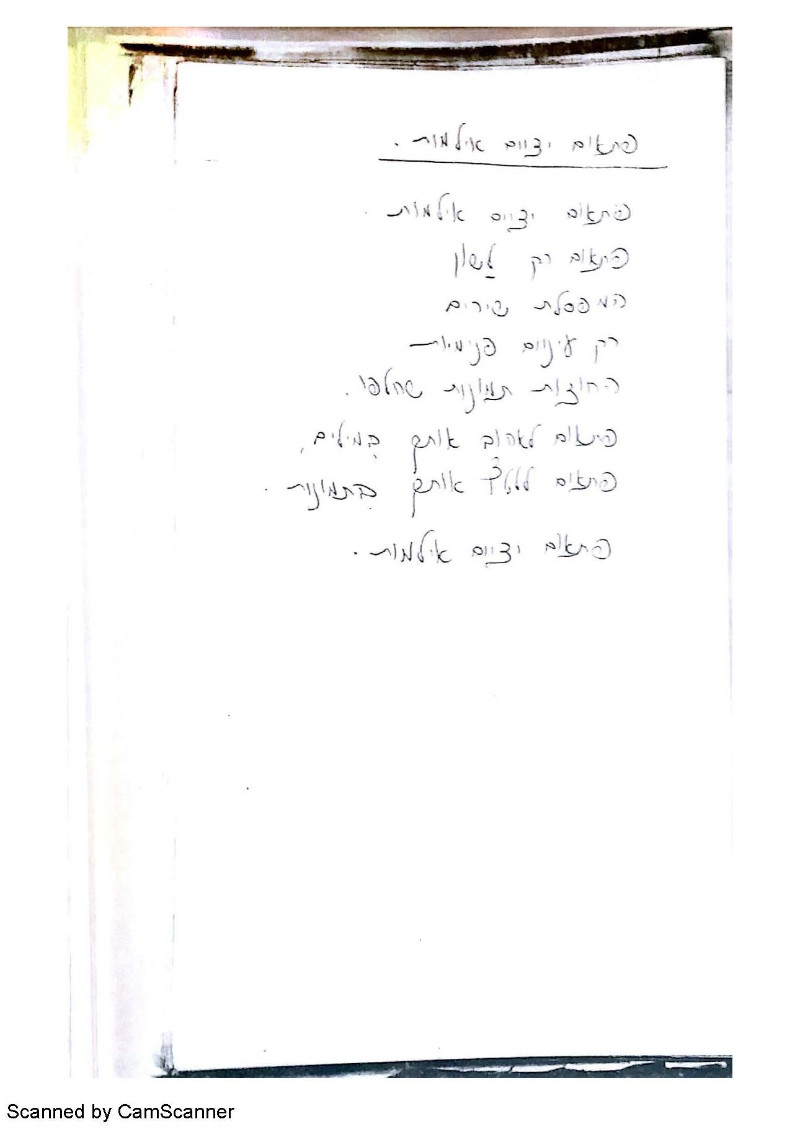 פתאום ידיים אילמות.
פתאום ידיים אילמות.
פתאום רק לשון
המפסלת שירים
רק עיניים פנימיות
החוזות תמונות שחלפו.
פתאום לאהוב אותך במילים,
פתאום אותך בתמונות.
פתאום ידיים אילמות.
Scanned by CamScanner